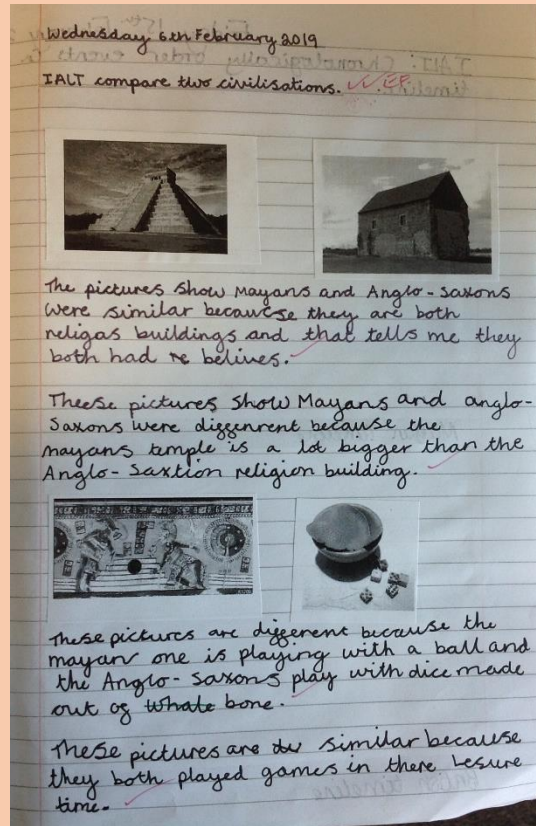 Wednesday 6th February 2019
IALT compare two civilisations.
The pictures show Mayans and Anglo-Saxons
were similar because they are both
religas buildings and that tells me they
both had re belives.
Theese pictures show Mayans and anglo-
Saxons were diggenrent because the
mayans temple is a lot bigger than the
Anglo-Saxtion religion building.
These pictures are diggerent because the
mayan one is playing with a ball and
the Anglo-Saxons play with dice made
out og whale bone.
These pictures are similar because
they both played games in there lesure
time.